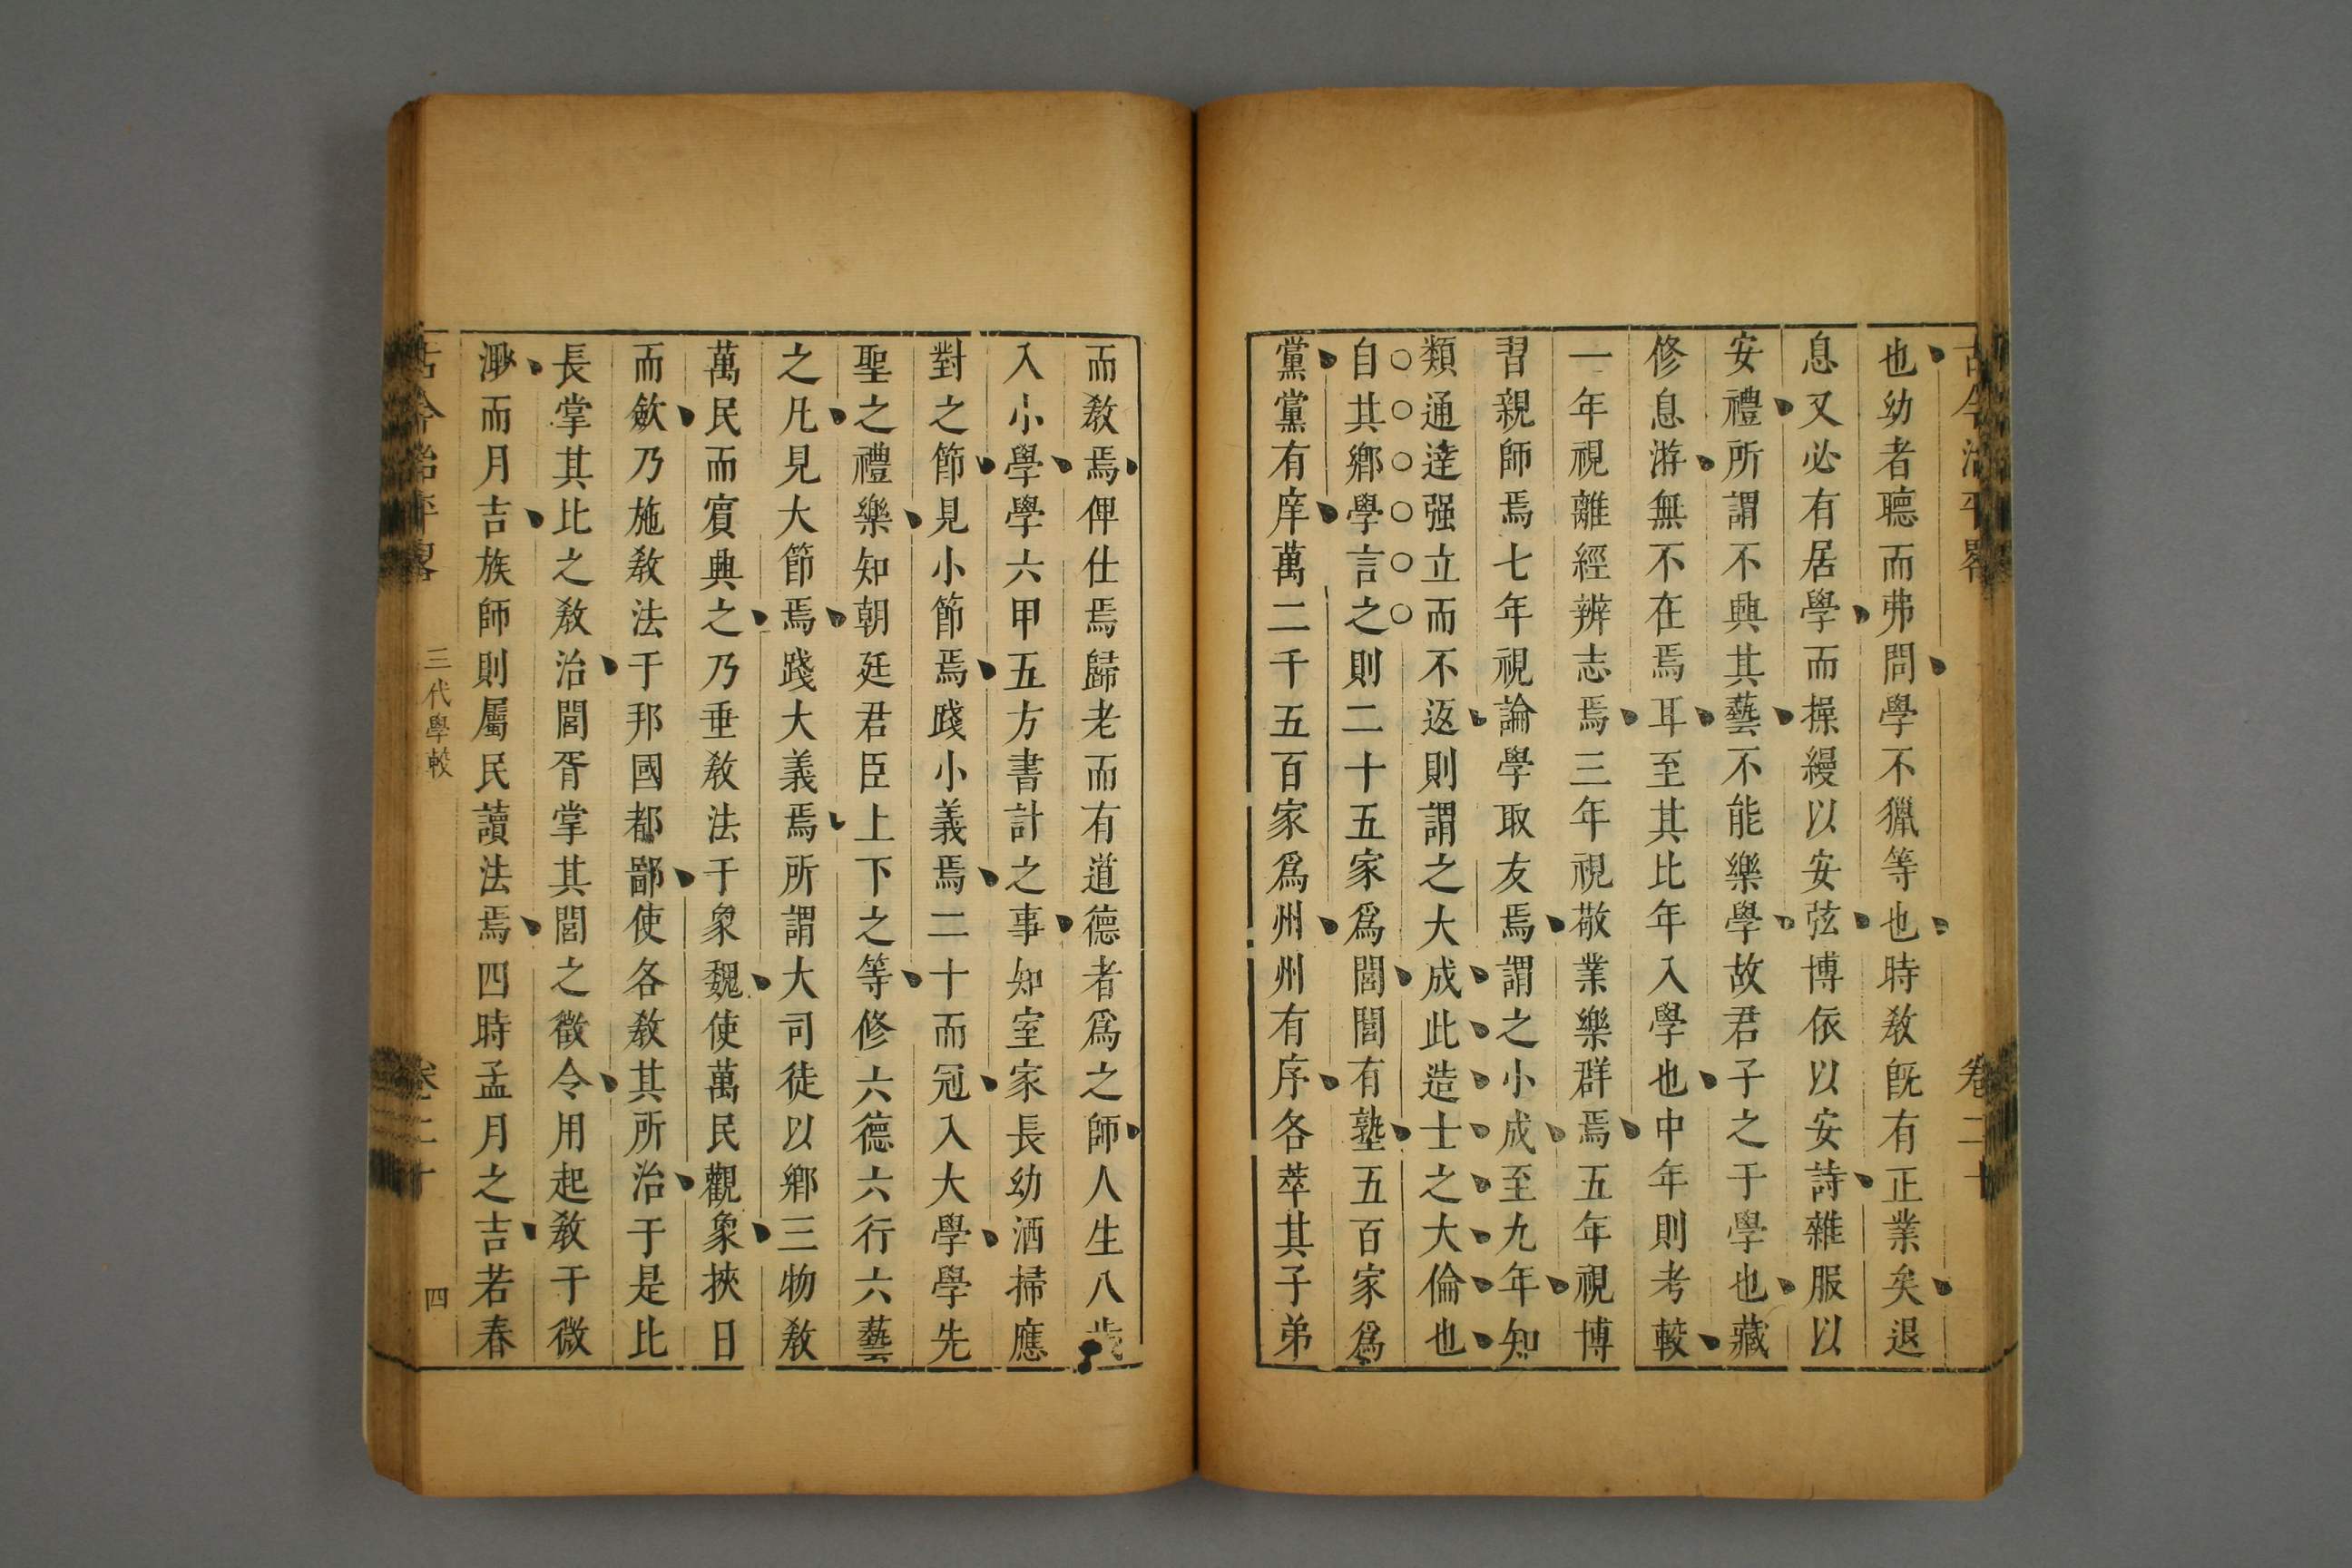 古今治平畧
卷二十
也幼者聽而弗問學不獵等也時教旣有正業矣退
息又必有居學而操縵以安弦博依以安詩雜服以
安禮所謂不興其藝不能樂學故君子之于學也藏
修息游無不在焉耳至其比年入學也中年則考較
一年視離經辨志焉三年視敬業樂群焉五年視博
習親師焉七年視論學取友焉謂之小成至九年知
類通達强立而不返則謂之大成此造士之大倫也
自其鄉學言之則二十五家爲閭閭有塾五百家爲
黨黨有庠萬二千五百家爲州州有序各萃其子弟
而教焉俾仕焉歸老而有道德者爲之師人生八歲
入小學學六甲五方書計之事知室家長幼洒掃應
對之節見小節焉踐小義焉二十而冠入大學學先
聖之禮樂知朝廷君臣上下之等修六德六行六藝
之凡見大節焉踐大義焉所謂大司徒以鄉三物教
萬民而賓興之乃垂教法于象魏使萬民觀象挾日
而斂乃施教法于邦國都鄙使各教其所治于是比
長掌其比之教治閭胥掌其閭之徵令用起教于微
渺而月吉族師則屬民讀法焉四時孟月之吉若春
古今治平畧
三代學較
卷二十
四